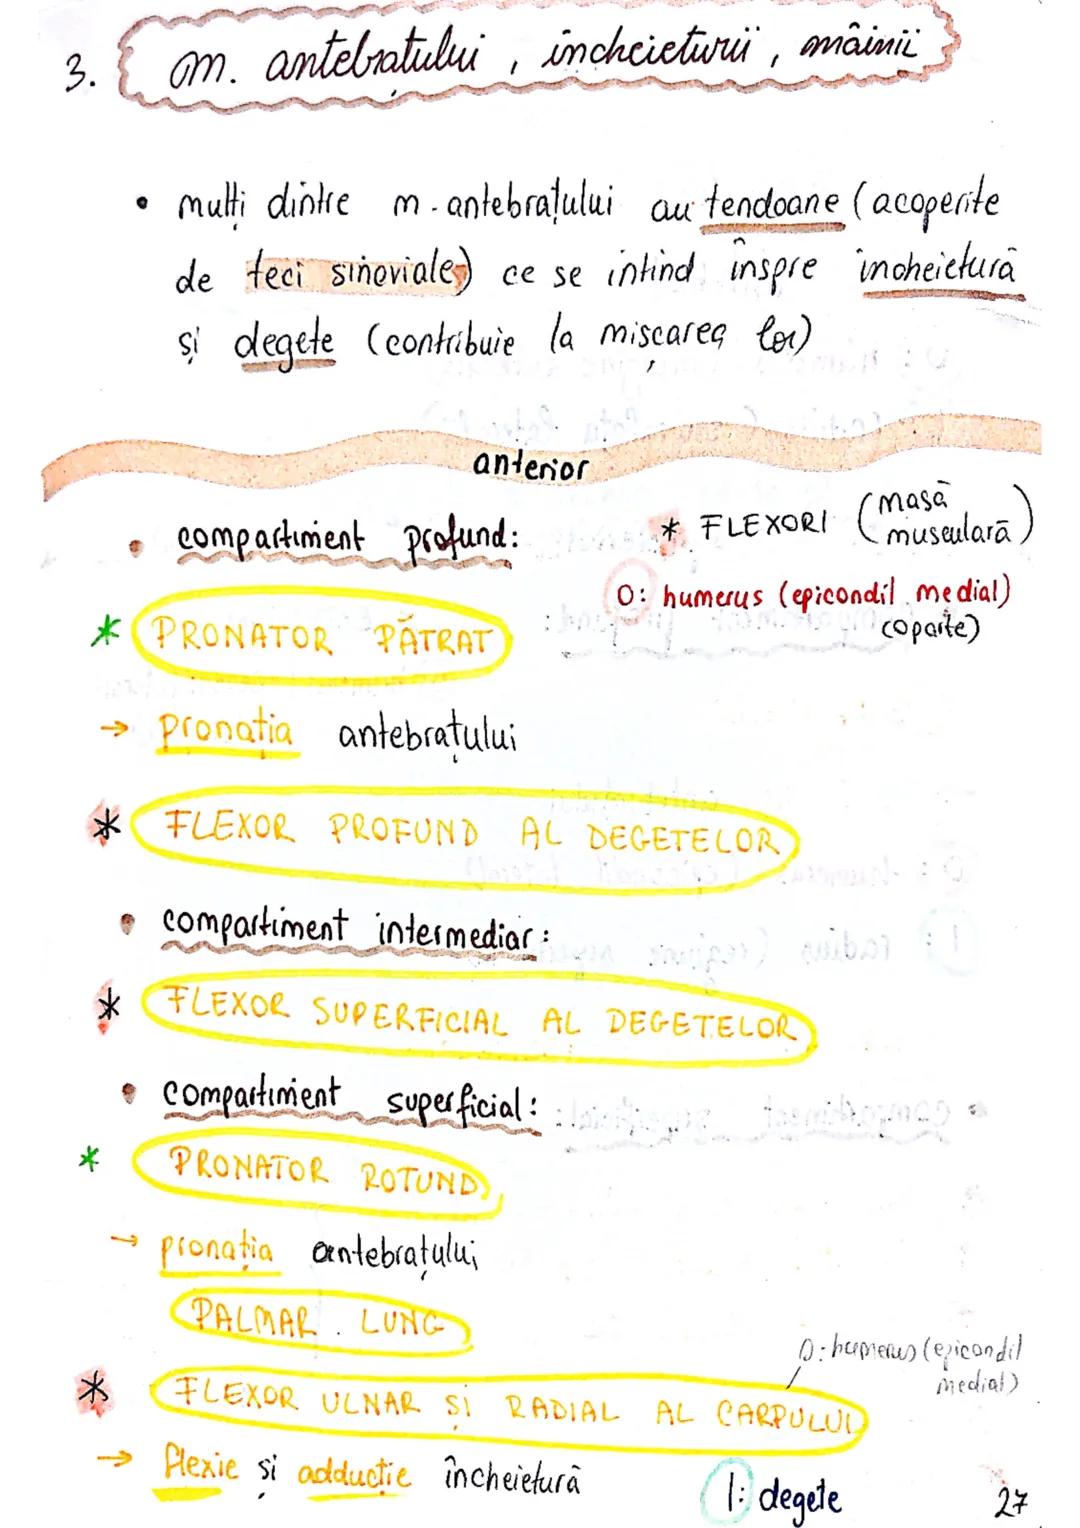 3. m. antebrațului, încheieturii, mâinii
• mulți dintre m. antebrațului au tendoane (acoperite
de teci sinoviale) ce se întind înspre încheietură
și degete (contribuie la mișcarea lor)
anterior
• compartiment profund:
* FLEXORI (masă
musculară)
O: humerus (epicondil medial)
(oparte)
* PRONATOR PĂTRAT
→ pronația antebrațului
* FLEXOR PROFUND AL DEGETELOR
• compartiment intermediar:
* FLEXOR SUPERFICIAL AL DEGETELOR
• compartiment superficial:
* PRONATOR ROTUND
→ pronația antebrațului
PALMAR LUNG
O: humerus (epicondil
medial)
* FLEXOR ULNAR ȘI RADIAL AL CARPULUI
→ flexie și adducție încheietură
I: degete
27